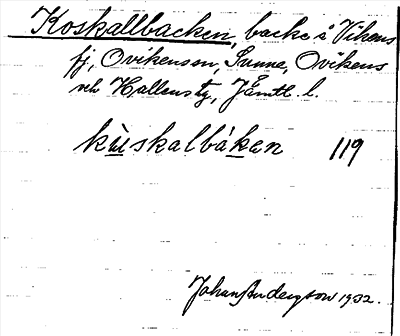 Koskallbacken, backe å Vikens
fj, Ovikenson, Sunne, Ovikens
och Hallens tg, Jämtl. l.
kùskalbáken 119
Johan Anderzson 1932.